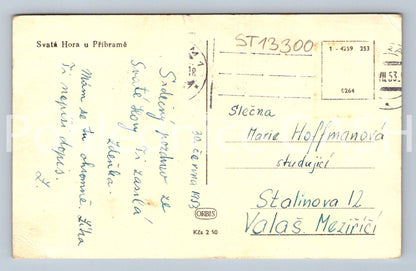 Svatá Hora u Příbramě
Srdečný pozdrav ze
Svaté Hory Ti zasílá
Zdeňka.
Mám se tu ohromně. Líba
Ti nepíši dopis.
Z.
30. června 1953
ORBIS
Kčs 2 50
ST13300
1 - 4259 253
0264
VII.53
Slečna
Marie Hoffmanová
studující
Stalinova 12
Valaš. Meziříčí